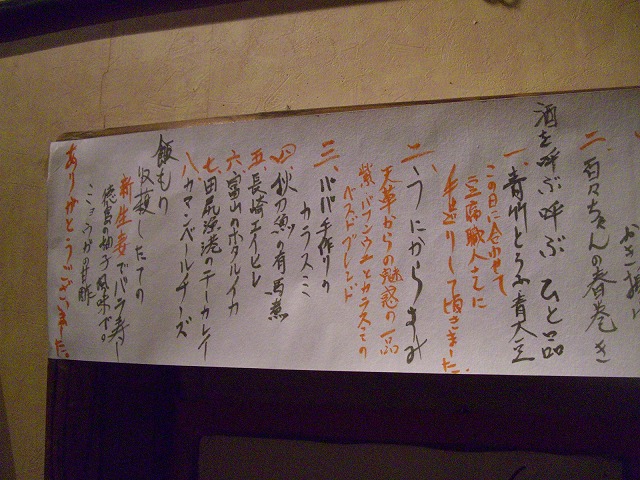 かき揚げ
二、百々ちゃんの春巻き
酒を呼ぶ呼ぶ ひと品
一、青竹とうふ青大豆
この日に合わせて
豆腐職人さんに
手造りして頂きました。
二、うにからすみ
天草からの魅惑の一品
紫、バフンウニとカラスミの
ベストブレンド
三、ババ手作りの
カラスミ
四、秋刀魚の有馬煮
五、長崎エイヒレ
六、富山のホタルイカ
七、田尻漁港のテーカレイ
八、カマンベールチーズ
飯もり
収穫したての
新生姜でバラ寿し
徳島の柚子風味で。
ミョウガの甘酢
ありがとうございました。